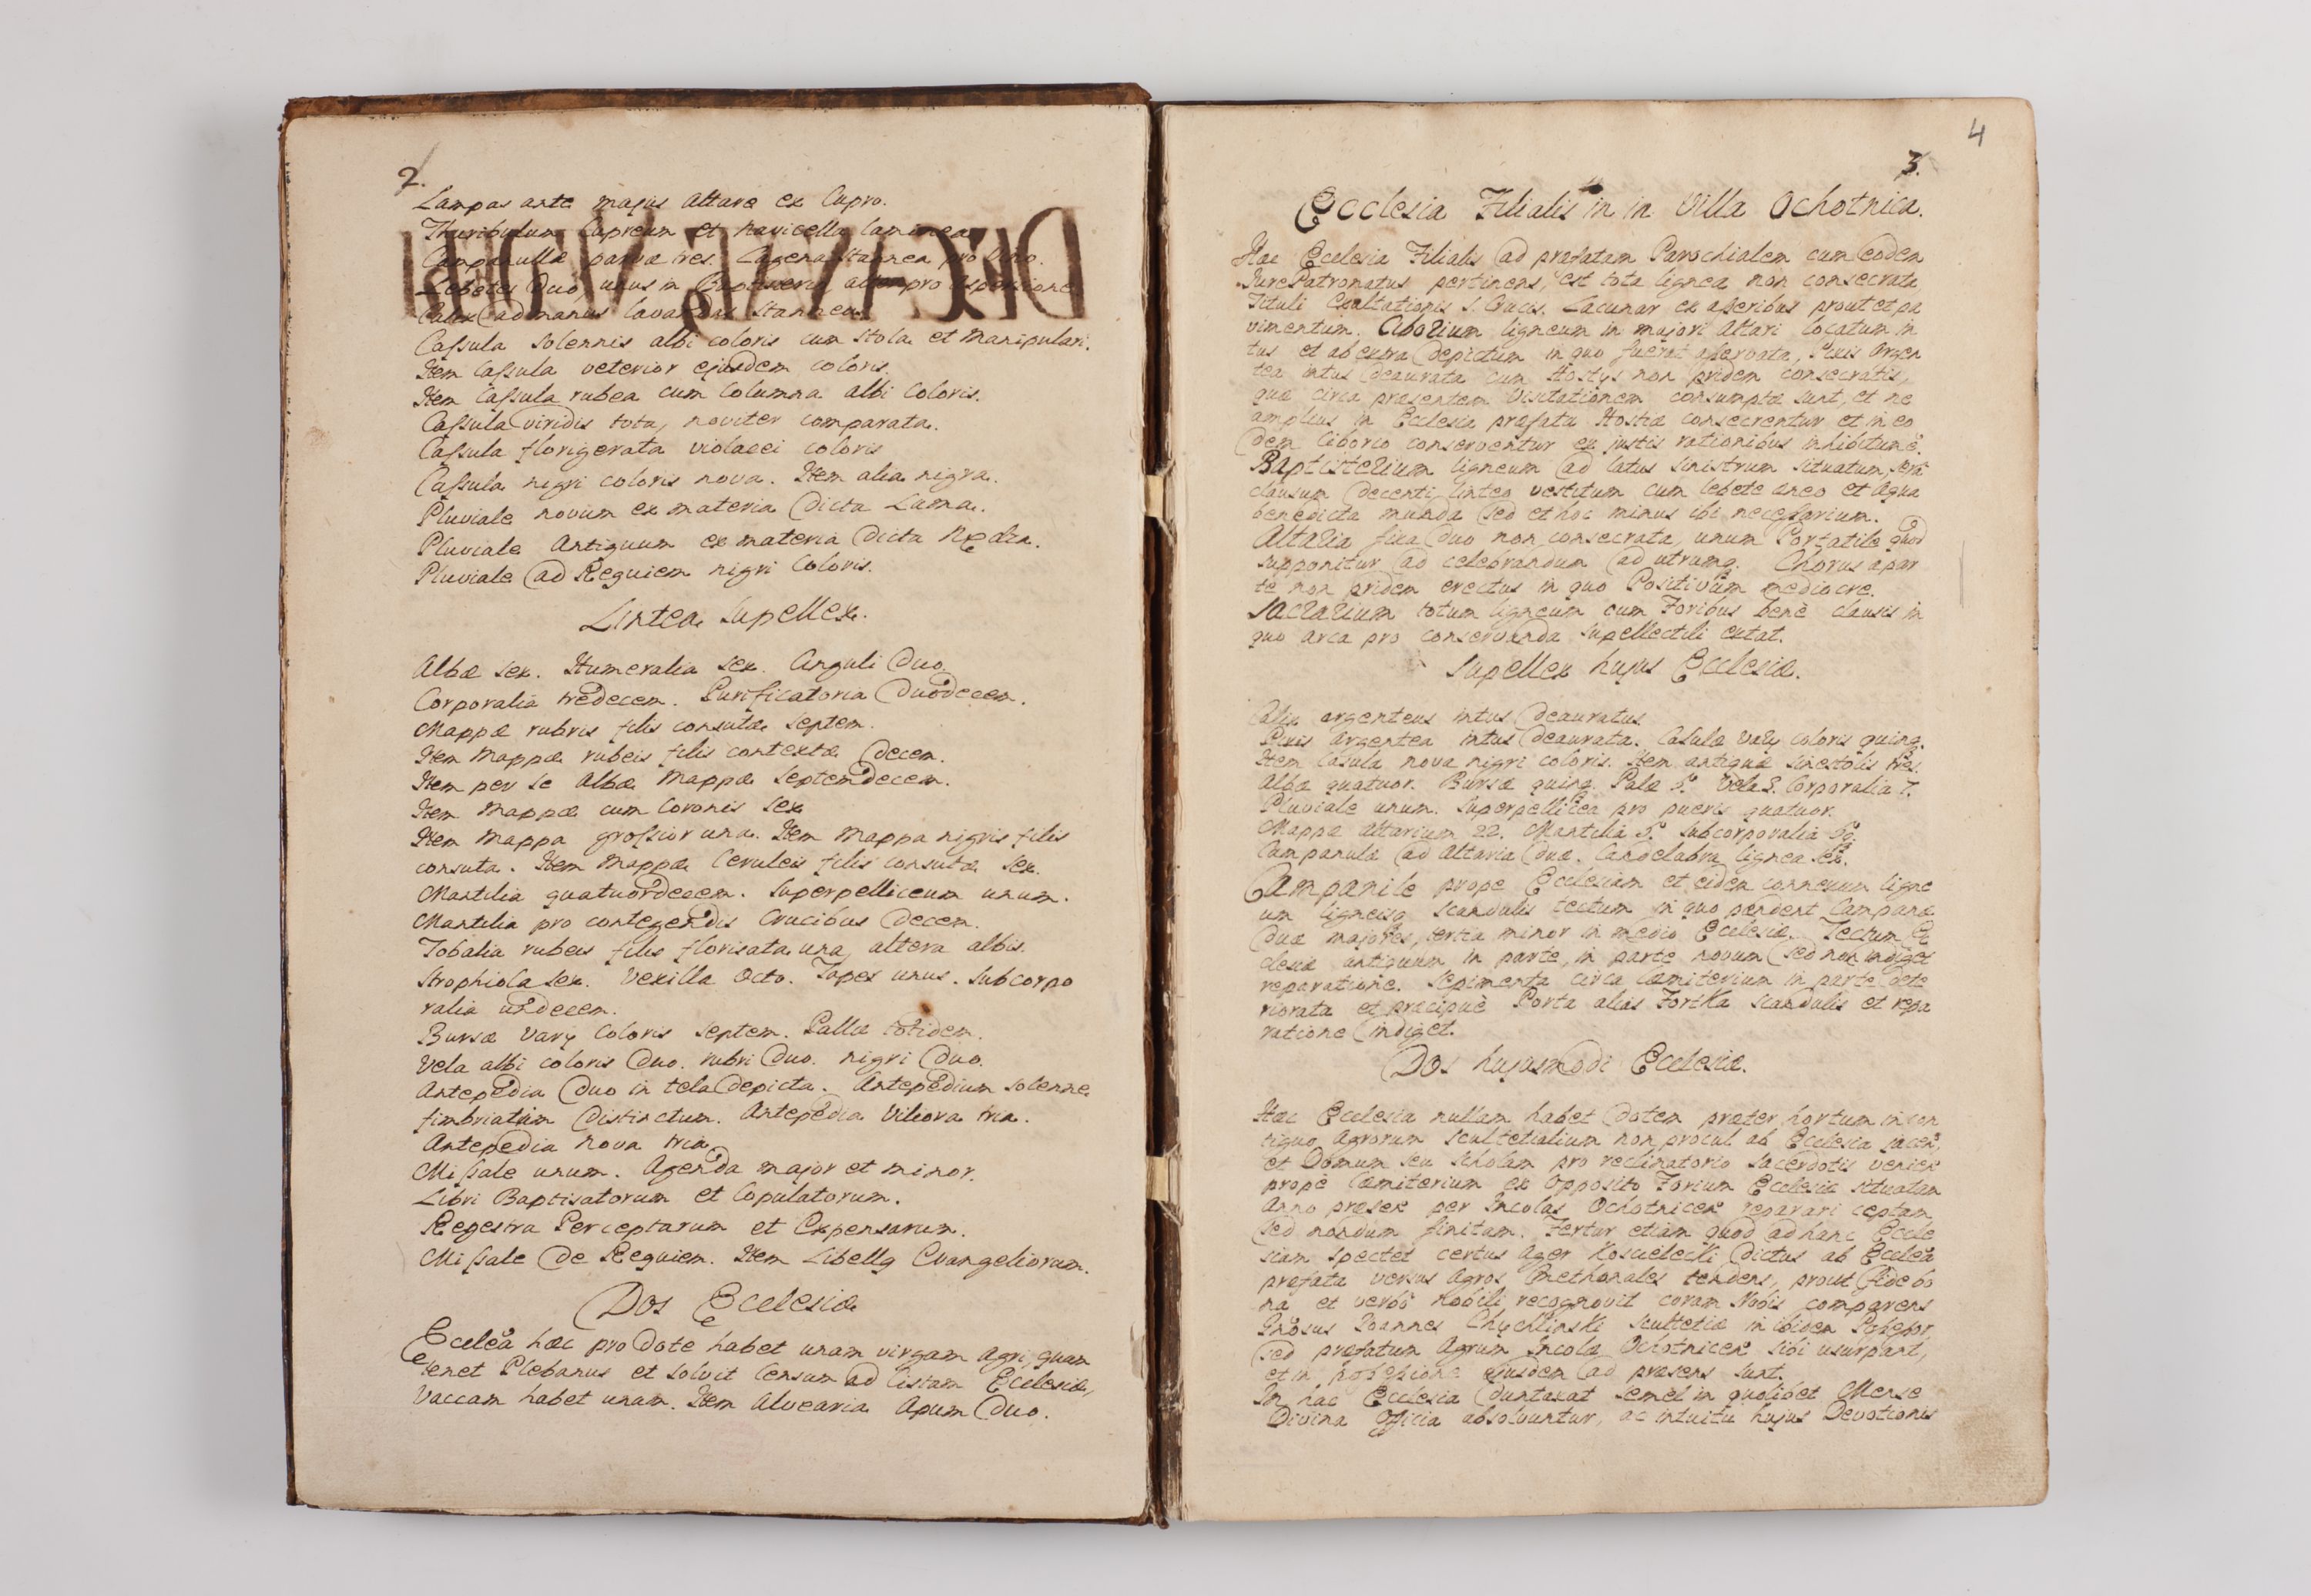 2.
Lampas ante majus Altare ex Cupro.
Thuribulum Cupreum et navicella laminea
Campanullæ parvæ tres. Lagena stannea pro Vino.
Lebetes Duo, unus in Baptisterio, alter pro Aspersione
ad manus stanneus
Caſsula Solennis albi coloris cum stola et Manipulari.
Item Caſsula veterior ejusdem coloris.
Item Caſsula rubea cum Columna albi Coloris.
Caſsula viridis tota, noviter comparata.
Caſsula florigerata violacei coloris
Caſsula nigri coloris nova. Item alia nigra.
Pluviale novum ex materia Dicta Lama.
Pluviale Antiquum ex materia Dicta
Pluviale ad Requiem nigri Coloris.
Lintea Supellex.
Albæ sex. Humeralia sex. Cinguli Duo.
Corporalia tredecem. Purificatoria Duodecem.
Mappæ rubris filis consutæ Septem.
Item Mappæ rubeis filis contextæ Decem.
Item per se Albæ Mappæ Septemdecem.
Item Mappæ cum Coronis sex
Item Mappa groſsior una. Item Mappa nigris filis
consuta. Item Mappæ Ceruleis filis consutæ sex.
Mantilia quatuordecem. Superpelliceum unum.
Mantilia pro contegendis Crucibus Decem.
Tobalia rubeis filis florisata una, altera albis.
Strophiola sex. Vexilla Octo. Tapes unus. Subcorpo
ralia undecem.
Bursæ Varij Coloris Septem. Pallæ totidem.
Vela albi coloris Duo. rubri Duo. nigri Duo.
Antepedia Duo in tela Depicta. Antepedium solenne
fimbriatum Distinctum. Antepedia Viliora tria.
Antepedia nova tria
Miſsale unum. Agenda major et minor.
Libri Baptisatorum et Copulatorum.
Regestra Perceptarum et Expensarum.
Miſsale De Requiem. Item Libellq Evangeliorum.
Dos Ecclesiæ
Eccleã hæc pro Dote habet unam virgam Agri, quam
tenet Plebanus et solvit Censum ad Cistam Ecclesiæ,
Vaccam habet unam. Item Alvearia Apum Duo.
4
3.
Ecclesia Filialis in in Villa Ochotnica.
Hæc Ecclesia Filialis ad præfatam Parochialem cum eodem
Jure Patronatus pertinens, est tota lignea non consecrata
Tituli Exaltationis S. Crucis. Lacunar ex aſseribus prout et pa
vimentum. Ciborium ligneum in majori Altari locatum in
tus et ab extra Depictum in quo fuerat aſservata, Pixis Argen
tea intus Deaurata cum Hostijs non pridem consecratis,
quæ circa præsentem Visitationem consumptæ sunt, et ne
amplius in Ecclesia præfata Hostiæ consecrentur et in eo
dem Ciborio conserventur ex justis rationibus inhibitum ẽ.
Baptisterium ligneum ad latus sinistrum situatum, serâ
clausum Decenti linteo vestitum cum lebete æneo et Aqua
benedicta munda sed et hoc minus ibi neceſsarium.
Altaria fixa Duo non consecrata, unum Portatile quod
supponitur ad celebrandum ad utrumq. Chorus a par
te non pridem erectus in quo Positivum mediocre.
Sacrarium totum ligneum cum Foribus benè clausis in
quo arca pro conservanda Supellectili extat.
Supellex hujus Ecclesiæ.
Calix argenteus intus Deauratus
Pixis Argentea intus Deaurata. Casulæ Varij Coloris quinq.
Item Casula nova nigri coloris. Item antiquæ tres.
Albæ quatuor. Bursæ quinq. Palæ Vela Corporalia 7.
Pluviale unum. Superpellicea pro pueris quatuor.
Mappæ Altarium 22. Mantilia Subcorporalia
Campanulæ ad Altaria Duæ. Candelabra lignea sex.
Campanile prope Ecclesiam et eidem connexum ligne
um ligneisq scandulis tectum in quo pendent Campanæ
Duæ majores, tertia minor in medio Ecclesiæ. Tectum Ec
clesiæ antiquum in parte, in parte novum sed non indiget
reparatione. Sepimenta circa Cæmiterium in parte Dete
riorata et præcipuè Porta alias Fortka scandulis et repa
ratione indiget.
Dos hujusmodi Ecclesiæ.
Hæc Ecclesia nullam habet Dotem præter hortum in con
tiguo Agrorum Scultetialium non procul ab Ecclesia jacen,
et Domum seu Scholam pro reclinatorio Sacerdotis venien
propè Cæmiterium ex Opposito Forium Ecclesiæ situatam
Anno præsen per Incolas Ochotnicen reparari ceptam
sed nondum finitam. Fertur etiam quod ad hanc Eccle
siam spectet certus Ager Koscielecki Dictus ab Eccleã
præfata versus Agros tendens, prout fide bo
na et verbo Nobili recognovit coram Nobis comparens
Joannes Chychlinski Scultetiæ in ibidem Poſseſsor,
sed præfatum Agrum Incolæ Ochotnicen sibi usurpant,
et in poſseſsione ejusdem ad præsens sunt.
In hac Ecclesia Duntaxat semèl in quolibet Mense
Divina Officia absolvuntur, ac intuitu hujus Devotionis